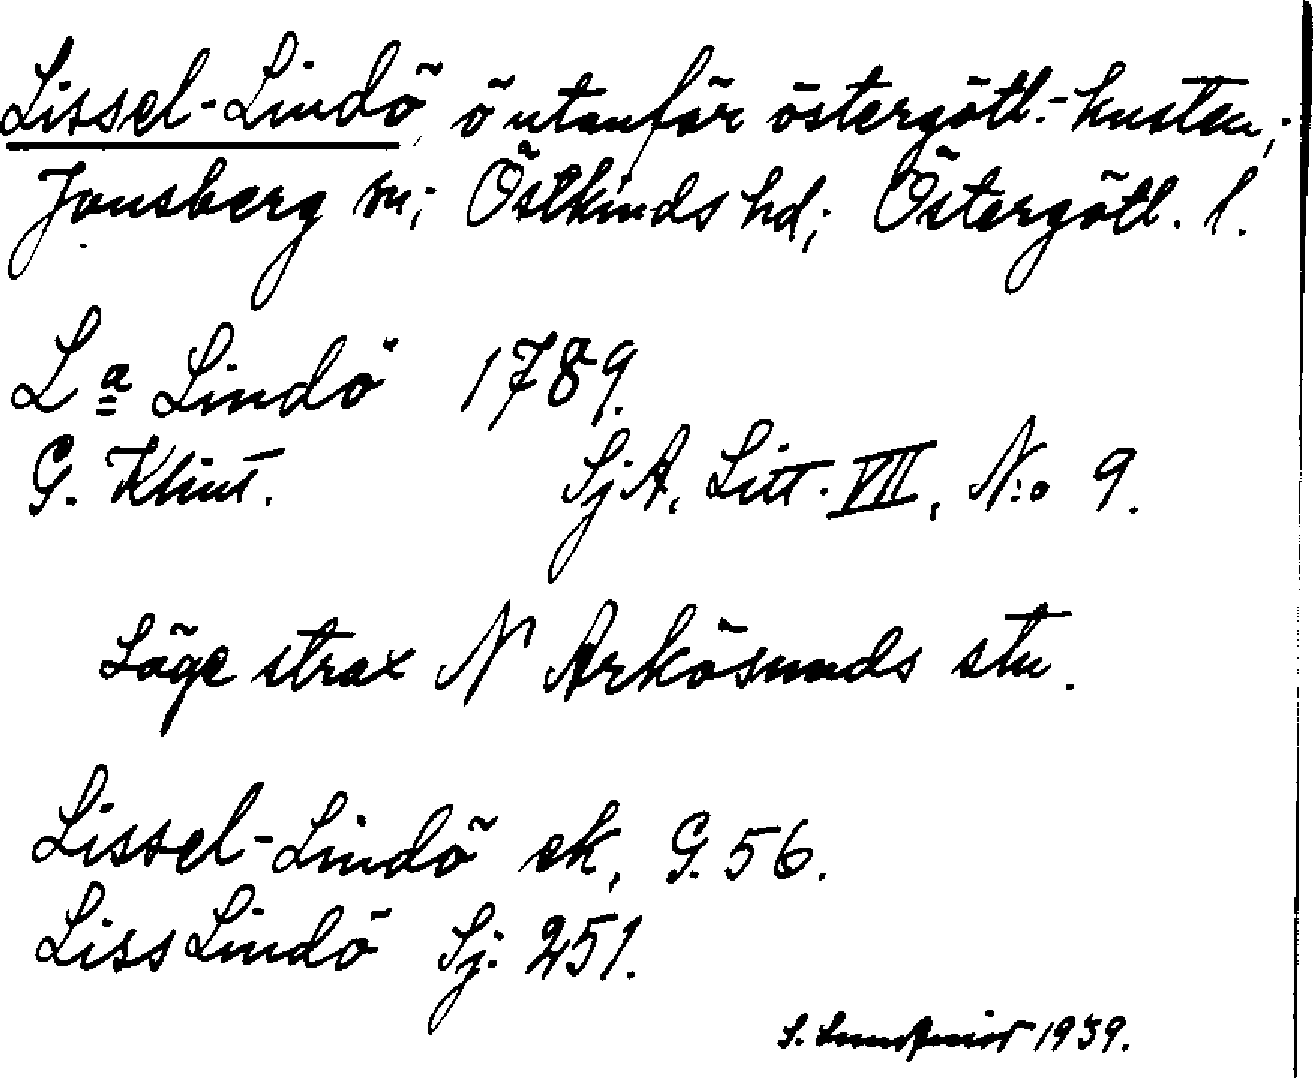 Lissel-Lindö, ö utanför östergötl.-kusten,;
Jonsberg sn; Östkinds hd; Östergötl. l.
La Lindö 1789.
G. Klint. SjA, Litt. VII, N:o 9.
Läge strax N Arkösunds stn.
Lissel-Lindö ek, G. 56.
LissLindö Sj: 251.
S. 1939.